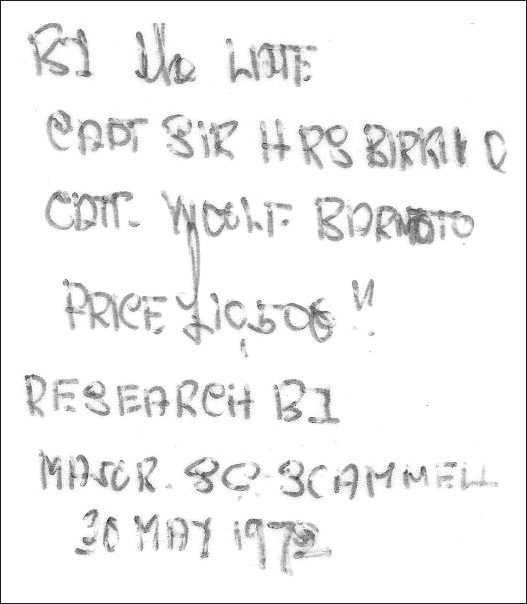 BY the LATE
CAPT SIR H R S BIRKIN
CAPT. WOOLF BARNATO
PRICE £10,500
RESEARCH BY
MAJOR. SC SCAMMELL
30 MAY 1972